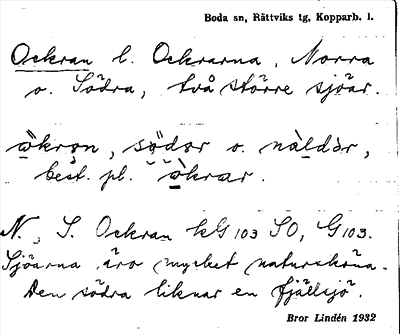 Boda sn, Rättviks tg, Kopparb. l.
Ockran l. Ockrarna, Norra
o. Södra, två större sjöar.
òkrọn, sö̀dọr o. nàldọr,
best. pl. òkrar.
N., S. Ockran kG 103 SO, G 103.
Sjöarna äro mycket natursköna.
Den södra liknar en fjällsjö.
Bror Lindén 1932